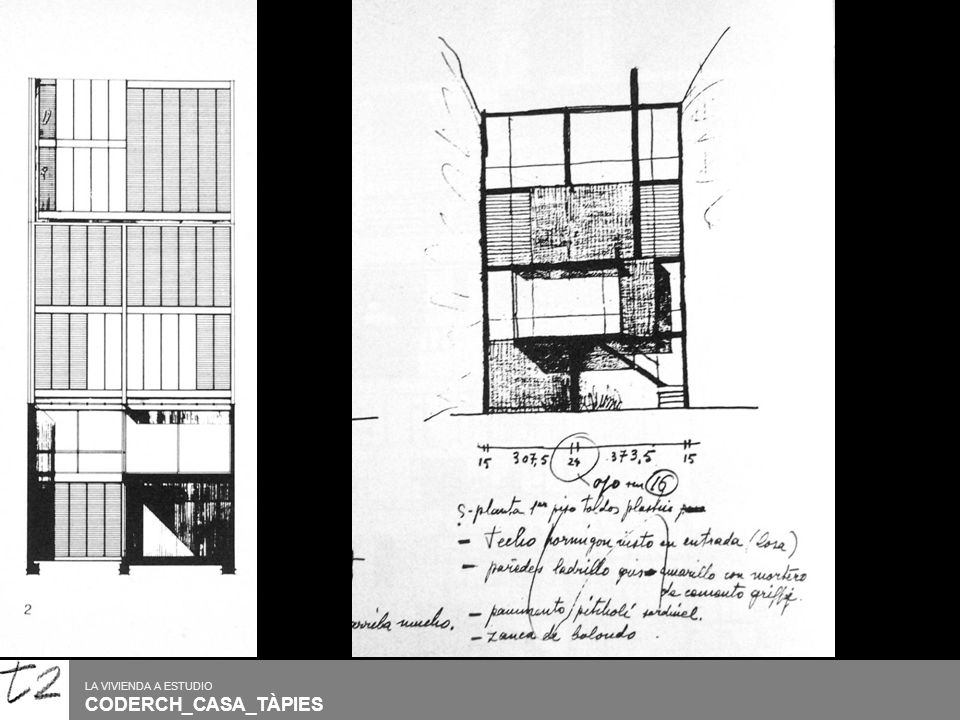 2
15 307,5 24 373,5 15
ojo son 16
S-planta 1er piso toldos plastic
- techo hormigon visto en entrada (losa)
- paredes ladrillo gris amarillo con mortero
de cemento griffi.
arriba mucho.
- pavimento pitcholi sardinel.
- zanca de bolondo.
t2
LA VIVIENDA A ESTUDIO
CODERCH_CASA_TÀPIES